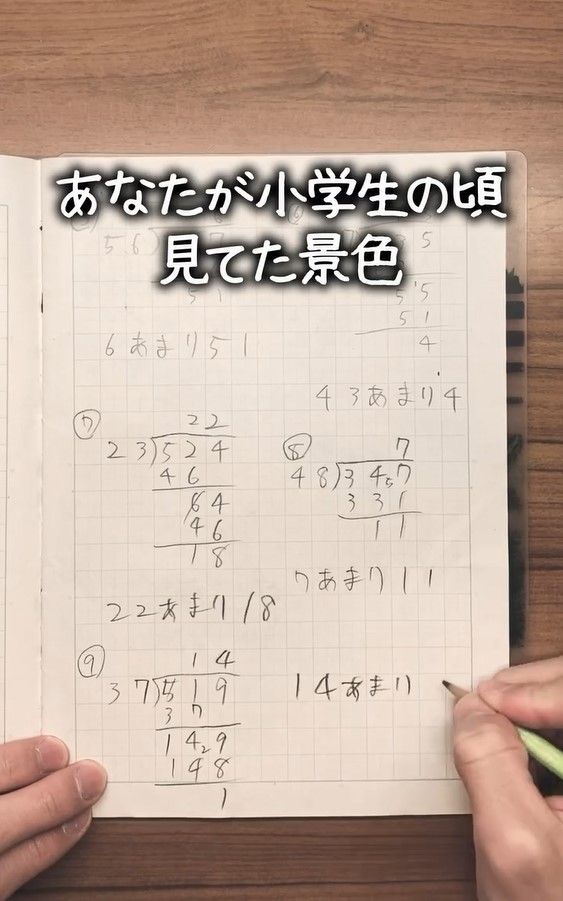 あなたが小学生の頃
見てた景色
56
35
51
55
51
6あまり51
4
43あまり4
⑦
22
23)524
46
64
46
18
22あまり18
⑧
7
48)347
331
11
7あまり11
⑨
14
37)519
37
149
148
1
14あまり